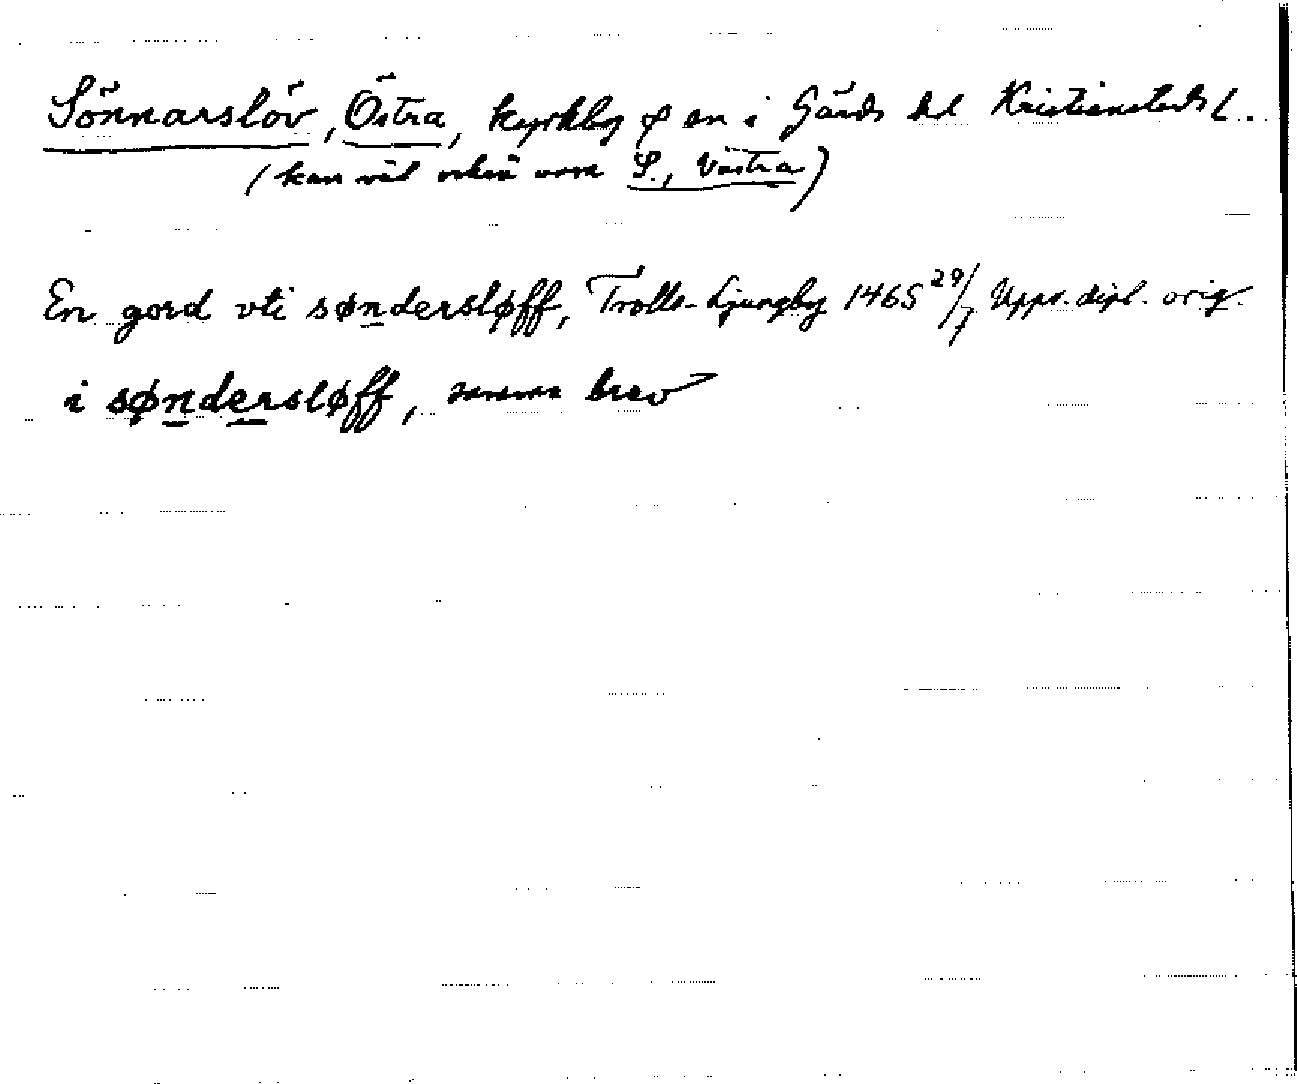 Sönnarslöv, Östra, kyrkby o en i Gärds hd Kristianstads L.
(kan väl också vara S., Västra)
En gord vti søndersløff, Trolle-Ljungby 1465 29/7 Upps. dipl. orig.
i søndersløff, samma brev